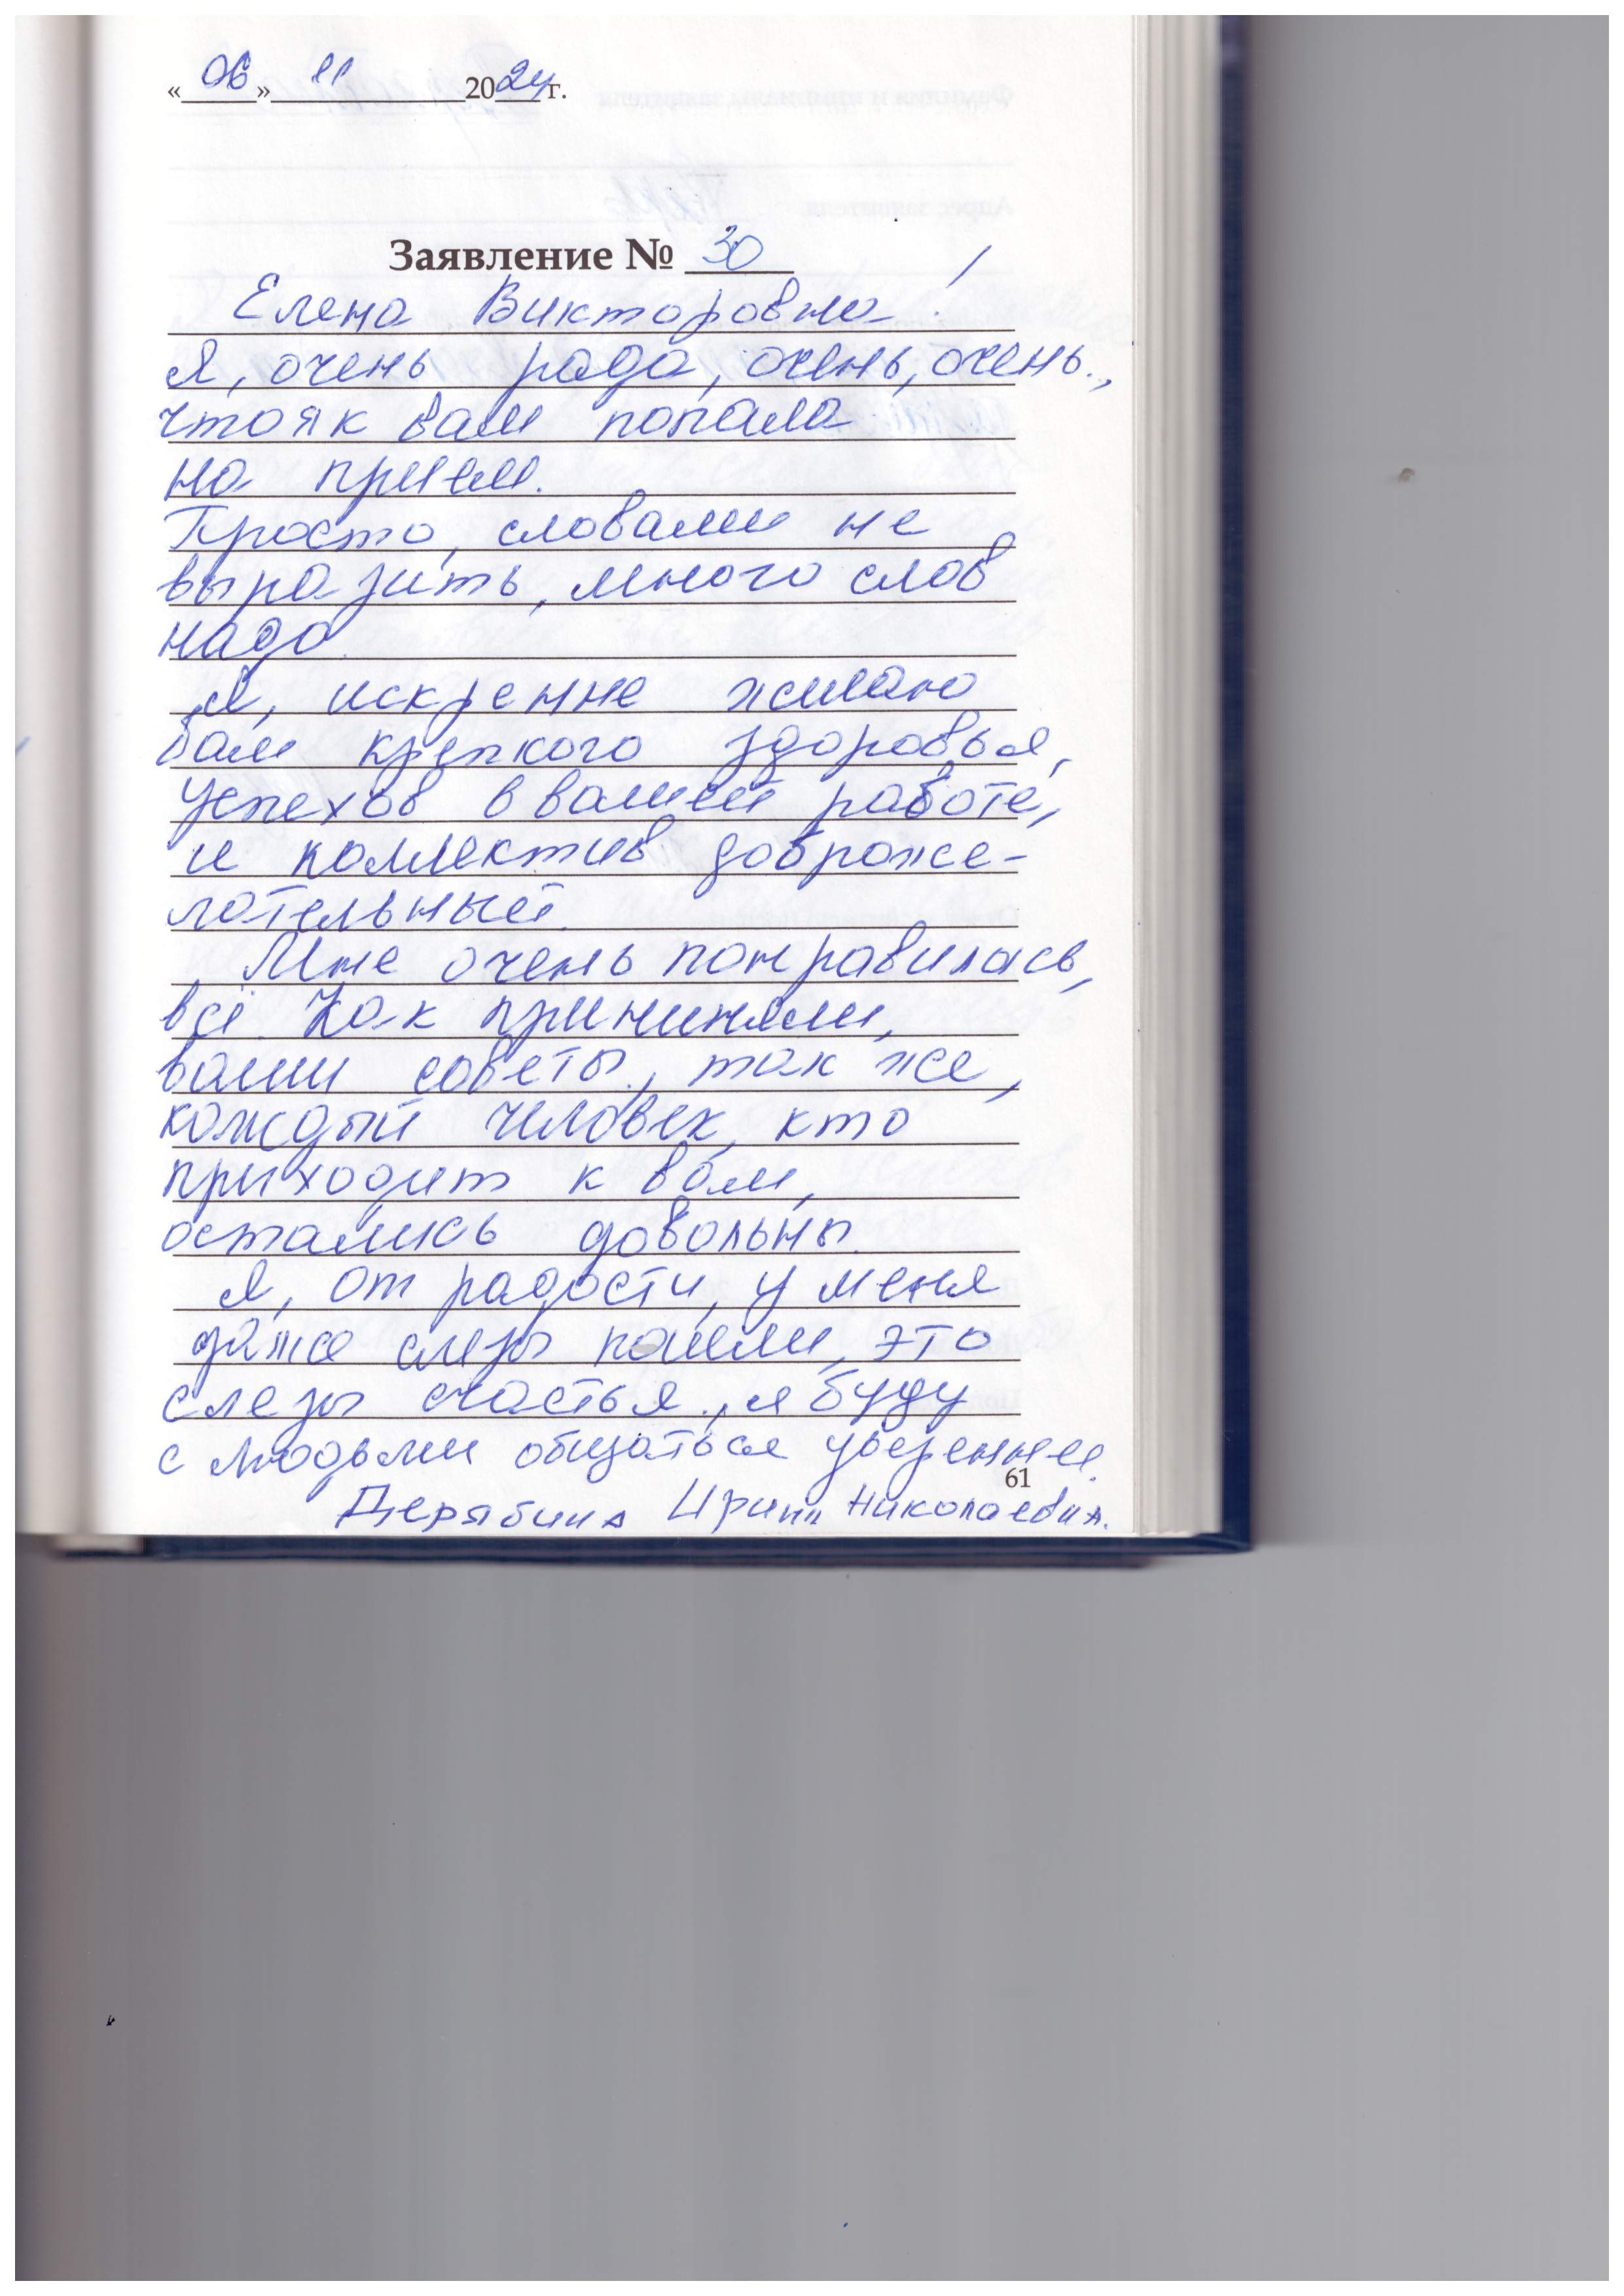 «06» 11 2024 г.
Заявление № 30
Елена Викторовна!
Я, очень рада, очень, очень.,
что я к вам попала
на прием.
Просто, словами не
выразить, много слов
надо.
Я, искренне желаю
вам крепкого здоровья,
успехов в вашей работе,
и коллектив доброже-
лательный.
Мне очень понравилась,
всё. Как принимали,
ваши советы., так же,
каждый человек, кто
приходит к вам,
остались довольны.
Я, от радости, у меня
даже слезы пошли, это
слезы счастья., я буду
с людьми общаться увереннее.
61
Дерябина Ирина Николаевна.